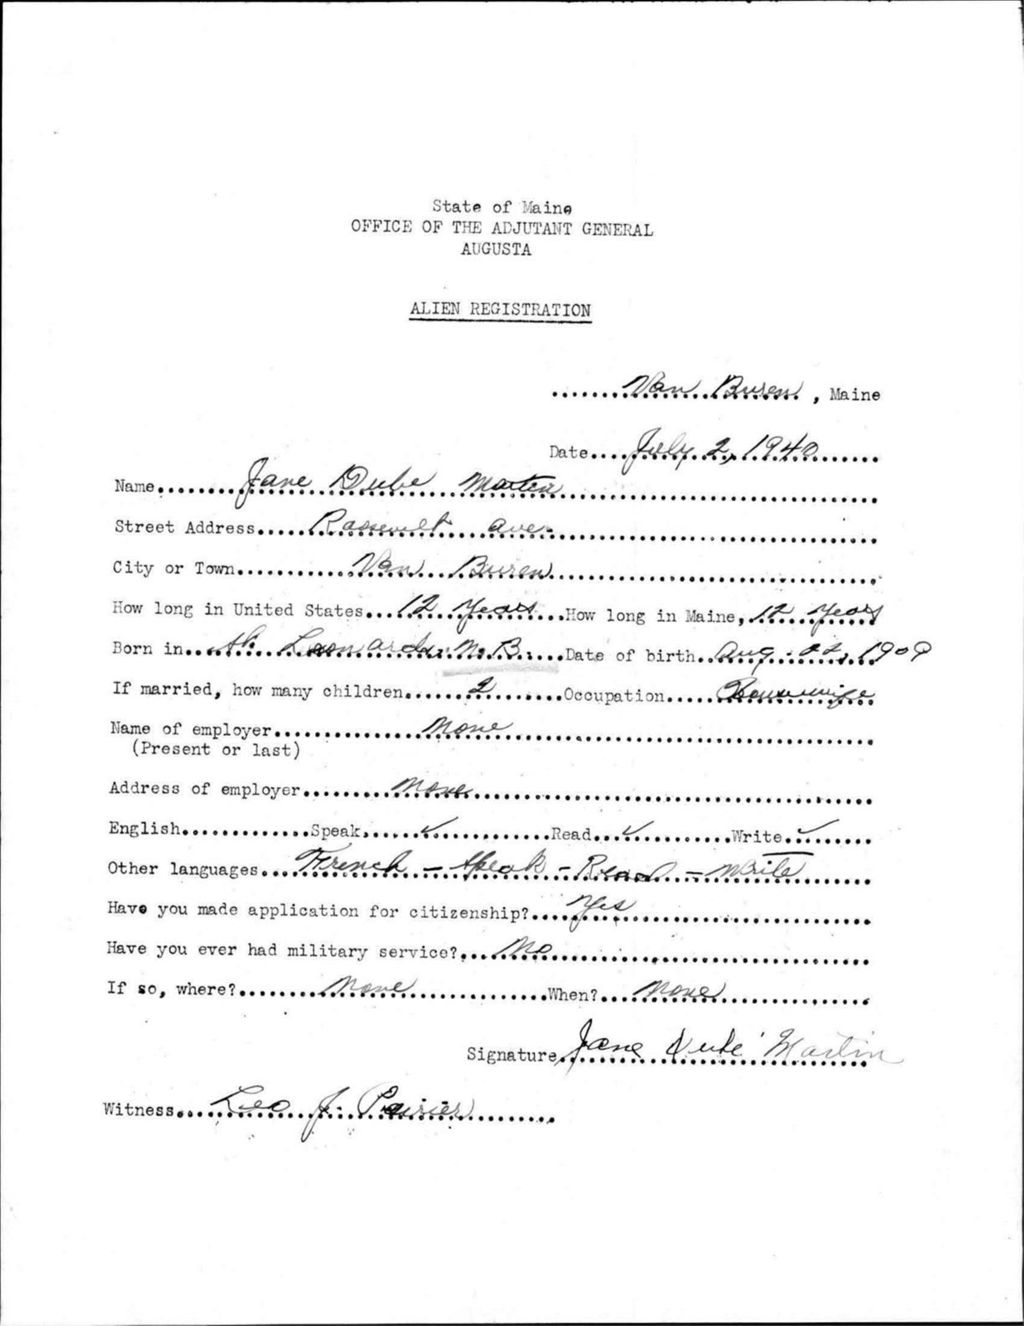 State of Maine
OFFICE OF THE ADJUTANT GENERAL
AUGUSTA
ALIEN REGISTRATION
Van Buren, Maine
Date July 2, 1940
Name Jane Dube Martin
Street Address Roosevelt Ave.
City or Town Van Buren
How long in United States 12 Years How long in Maine, 12 Years
Born in St. Leonard, N. B. Date of birth Aug. 22, 1909
If married, how many children 2 Occupation Housewife
Name of employer None
(Present or last)
Address of employer None
English Speak ✓ Read ✓ Write ✓
Other languages French - Speak - Read - Write
Have you made application for citizenship? Yes
Have you ever had military service? No
If so, where? None When? None
Signature Jane Dube Martin
Witness Leo J. Poirier